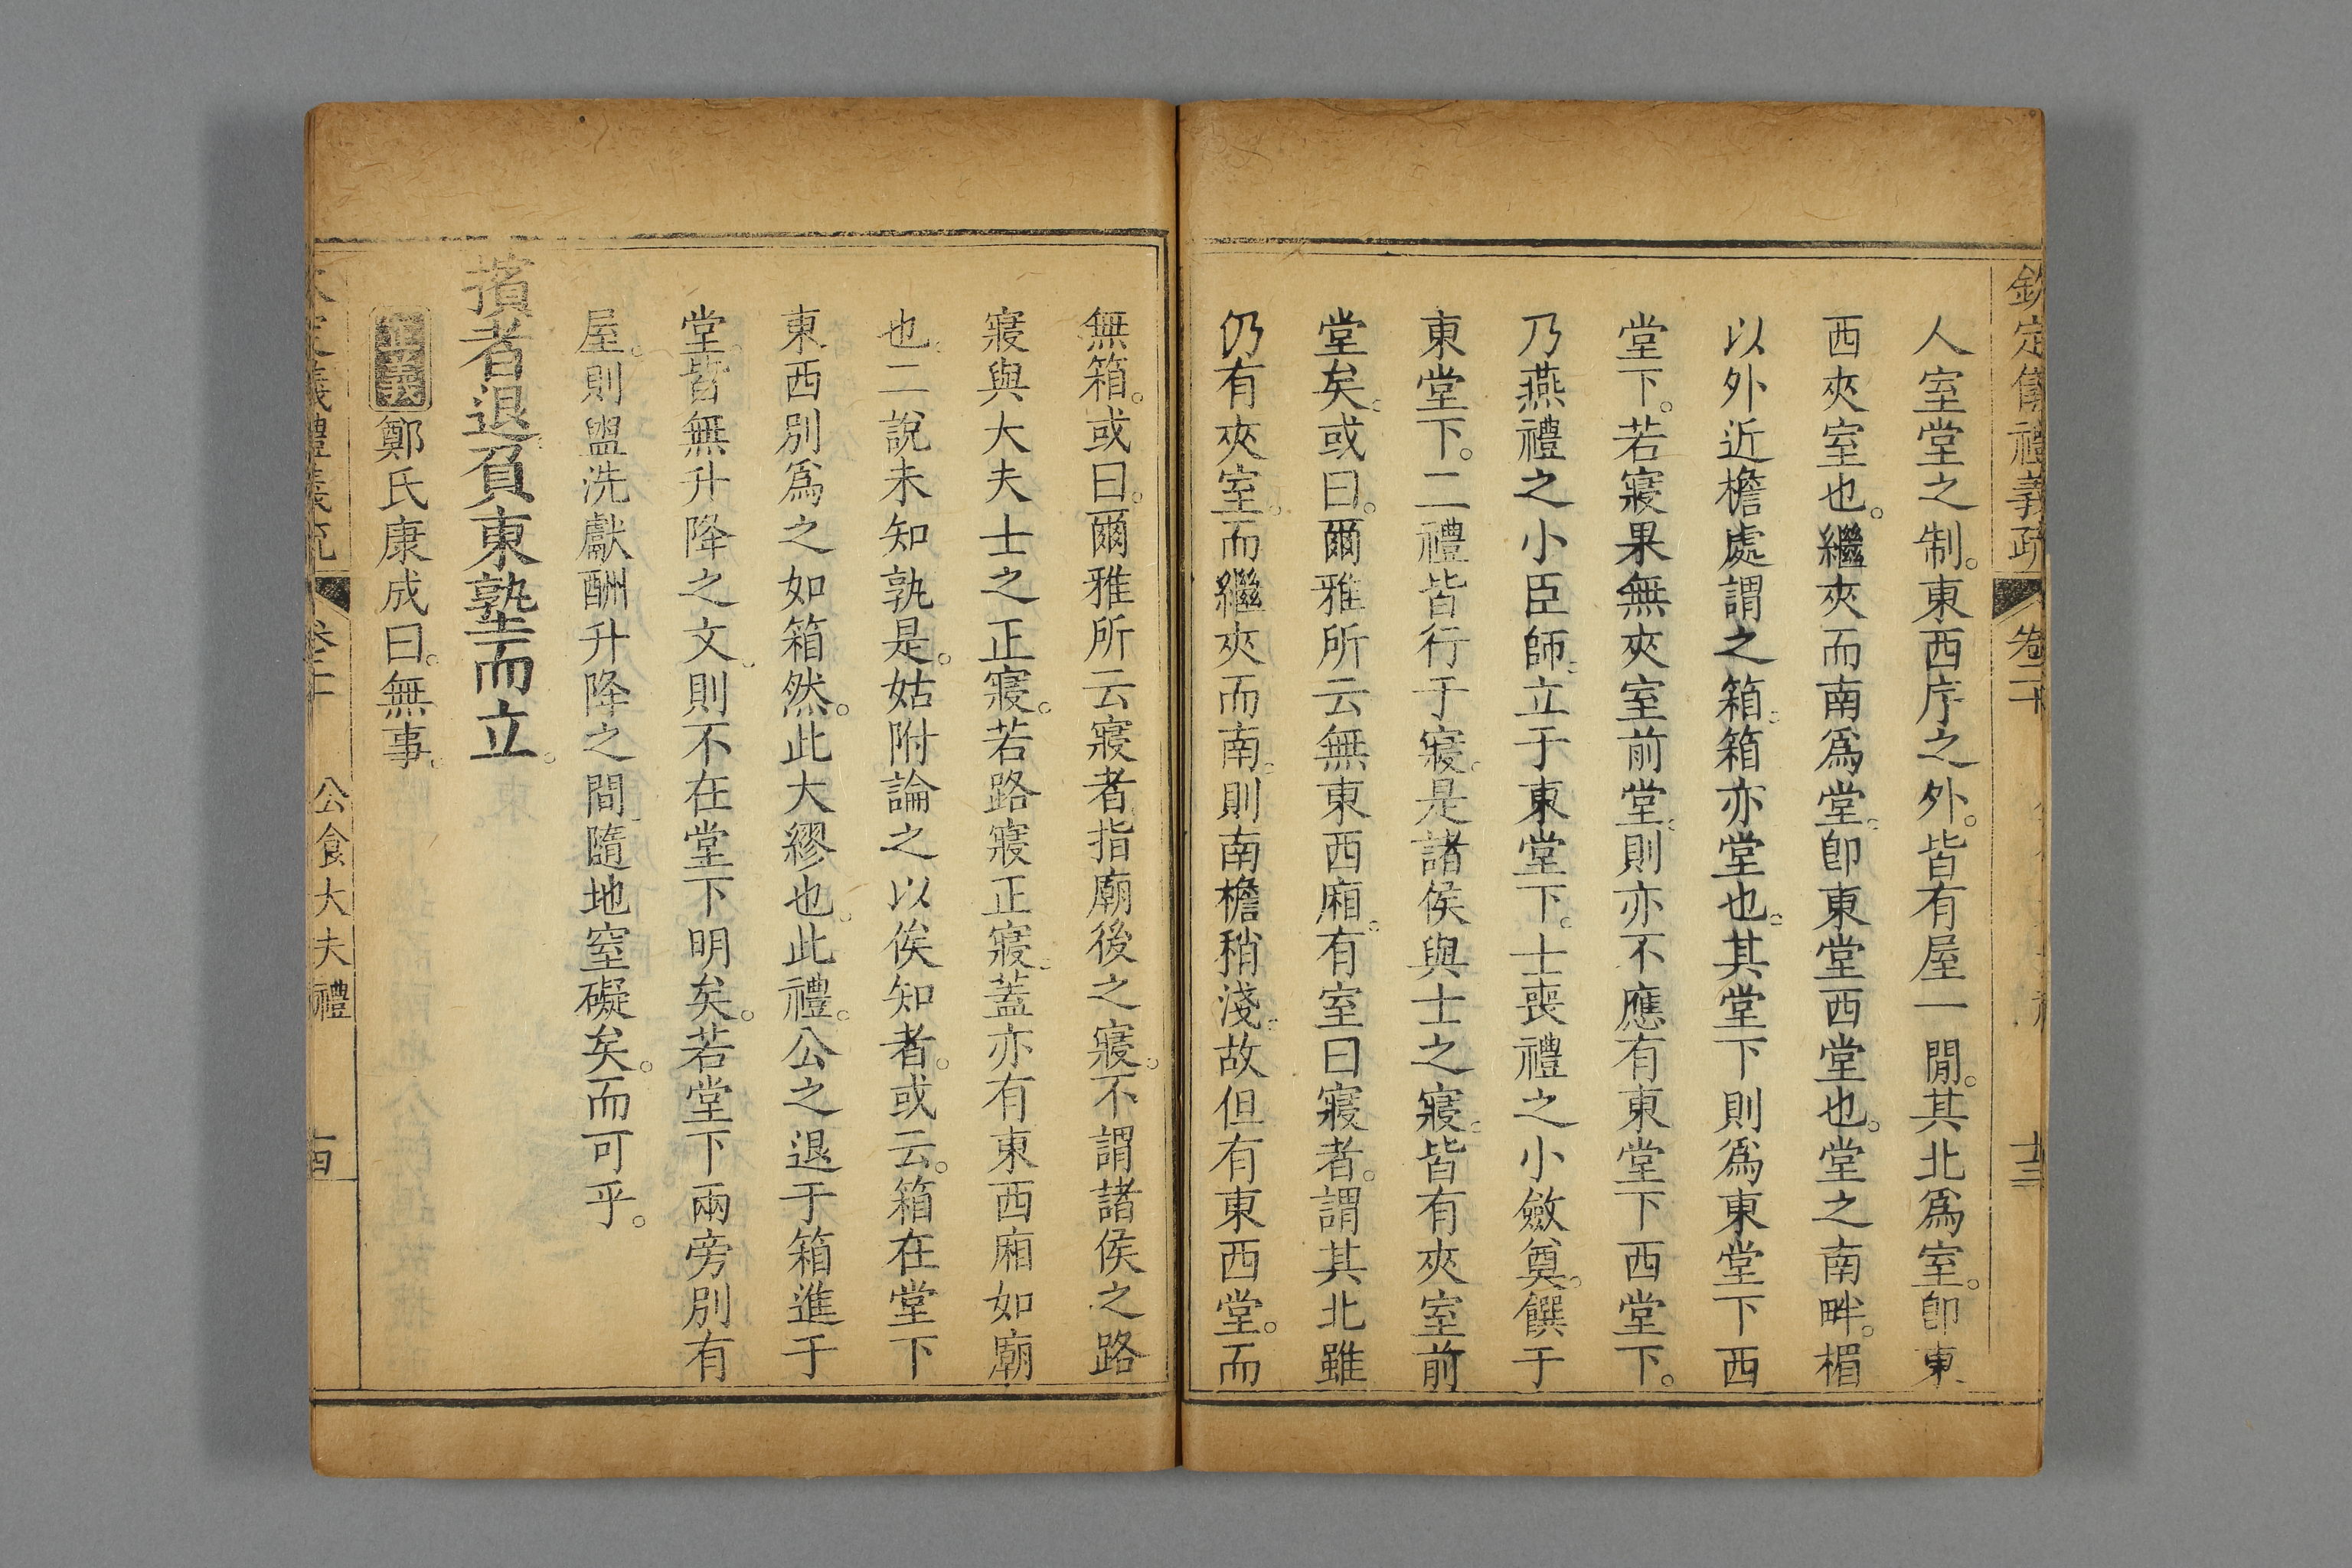 欽定儀禮義疏 卷二十 十三
人室堂之制。東西序之外。皆有屋一閒。其北爲室。卽東
西夾室也。繼夾而南爲堂。卽東堂西堂也。堂之南畔。楣
以外近檐處謂之箱。箱亦堂也。其堂下則爲東堂下西
堂下。若寢果無夾室前堂。則亦不應有東堂下西堂下。
乃燕禮之小臣師。立于東堂下。士喪禮之小斂奠。饌于
東堂下。二禮皆行于寢。是諸侯與士之寢。皆有夾室前
堂矣。或曰。爾雅所云無東西廂。有室曰寢者。謂其北雖
仍有夾室。而繼夾而南。則南檐稍淺。故但有東西堂。而
無箱。或曰。爾雅所云寢者指廟後之寢。不謂諸侯之路
寢與大夫士之正寢。若路寢正寢。蓋亦有東西廂如廟
也。二說未知孰是。姑附論之以俟知者。或云。箱在堂下
東西別爲之如箱然。此大繆也。此禮。公之退于箱進于
堂。皆無升降之文。則不在堂下明矣。若堂下兩旁別有
屋。則盥洗獻酬升降之間。隨地窒礙矣。而可乎。
擯者退。負東塾而立。
正義鄭氏康成曰。無事。
欽定儀禮義疏 卷二十 公食大夫禮 十四